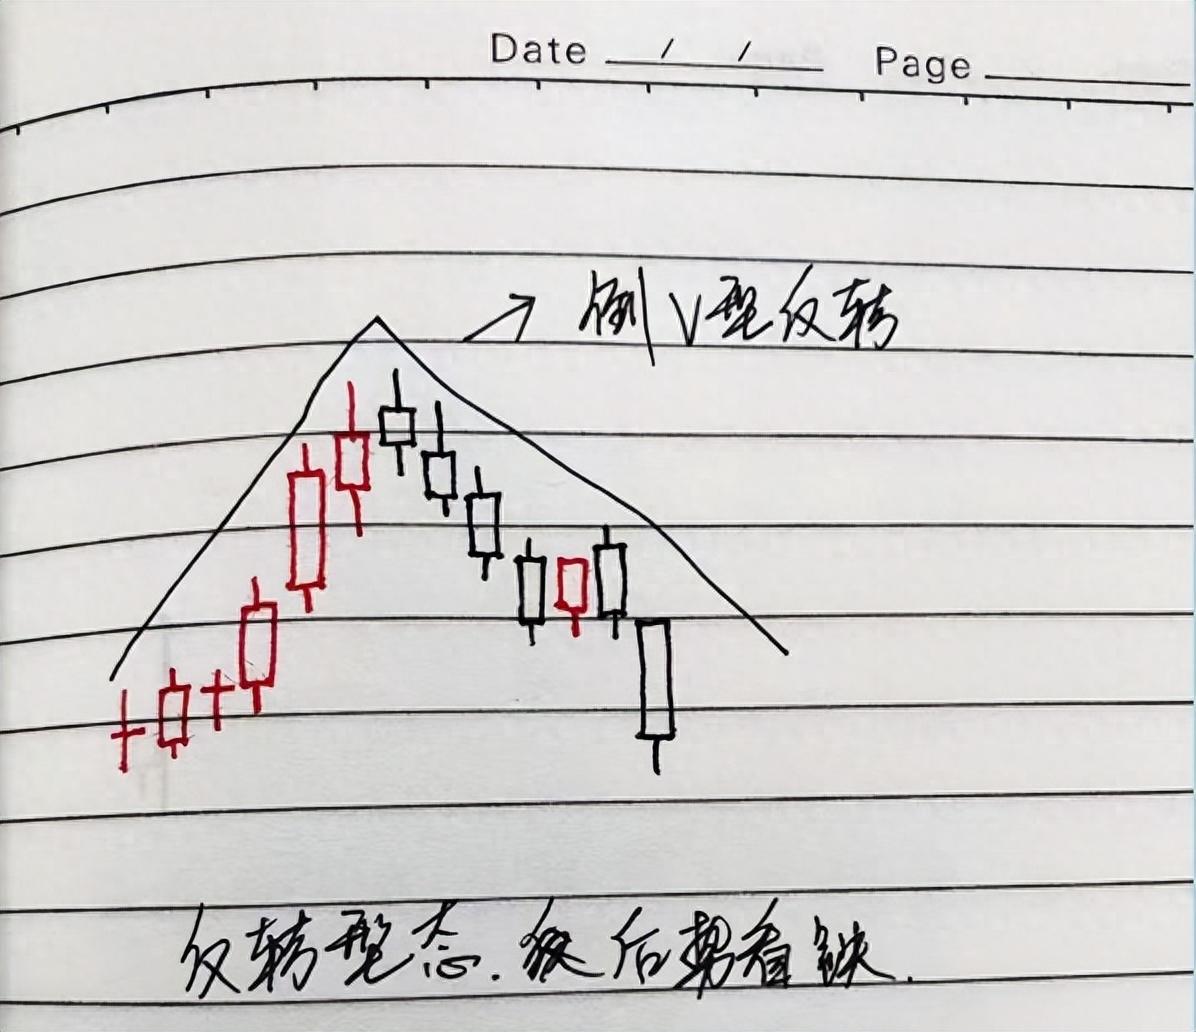 Date / / Page
倒V型反转
反转型态. 后势看跌.